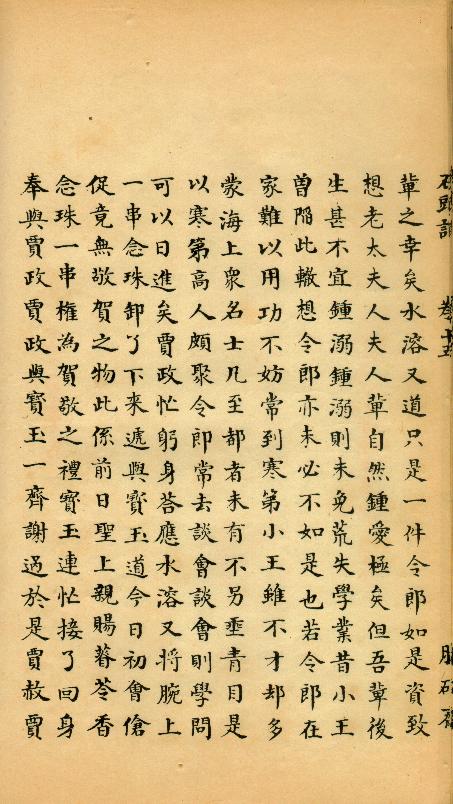 石頭記 卷十五
輩之幸矣水溶又道只是一件令郎如是資致
想老太夫人夫人輩自然鍾愛極矣但吾輩後
生甚不宜鍾溺鍾溺則未免荒失學業昔小王
曽陷此轍想令郎亦未必不如是也若令郎在
家難以用功不妨常到寒第小王雖不才却多
蒙海上衆名士凡至都者未有不另垂青目是
以寒第高人頗聚令郎常去談會談會則學問
可以日進矣賈政忙躬身答應水溶又將腕上
一串念珠卸了下來遞與寳玉道今日初會傖
促竟無敬賀之物此係前日聖上親賜苓香
念珠一串權為賀敬之禮寳玉連忙接了回身
奉與賈政賈政與寳玉一齊謝過於是賈赦賈